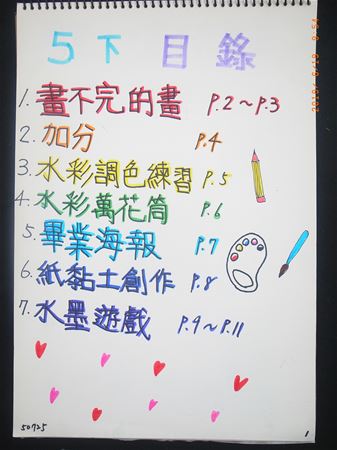 5下目錄
1. 畫不完的畫 P.2～P.3
2. 加分 P.4
3. 水彩調色練習 P.5
4. 水彩萬花筒 P.6
5. 畢業海報 P.7
6. 紙黏土創作 P.8
7. 水墨遊戲 P.9～P.11
50725
1